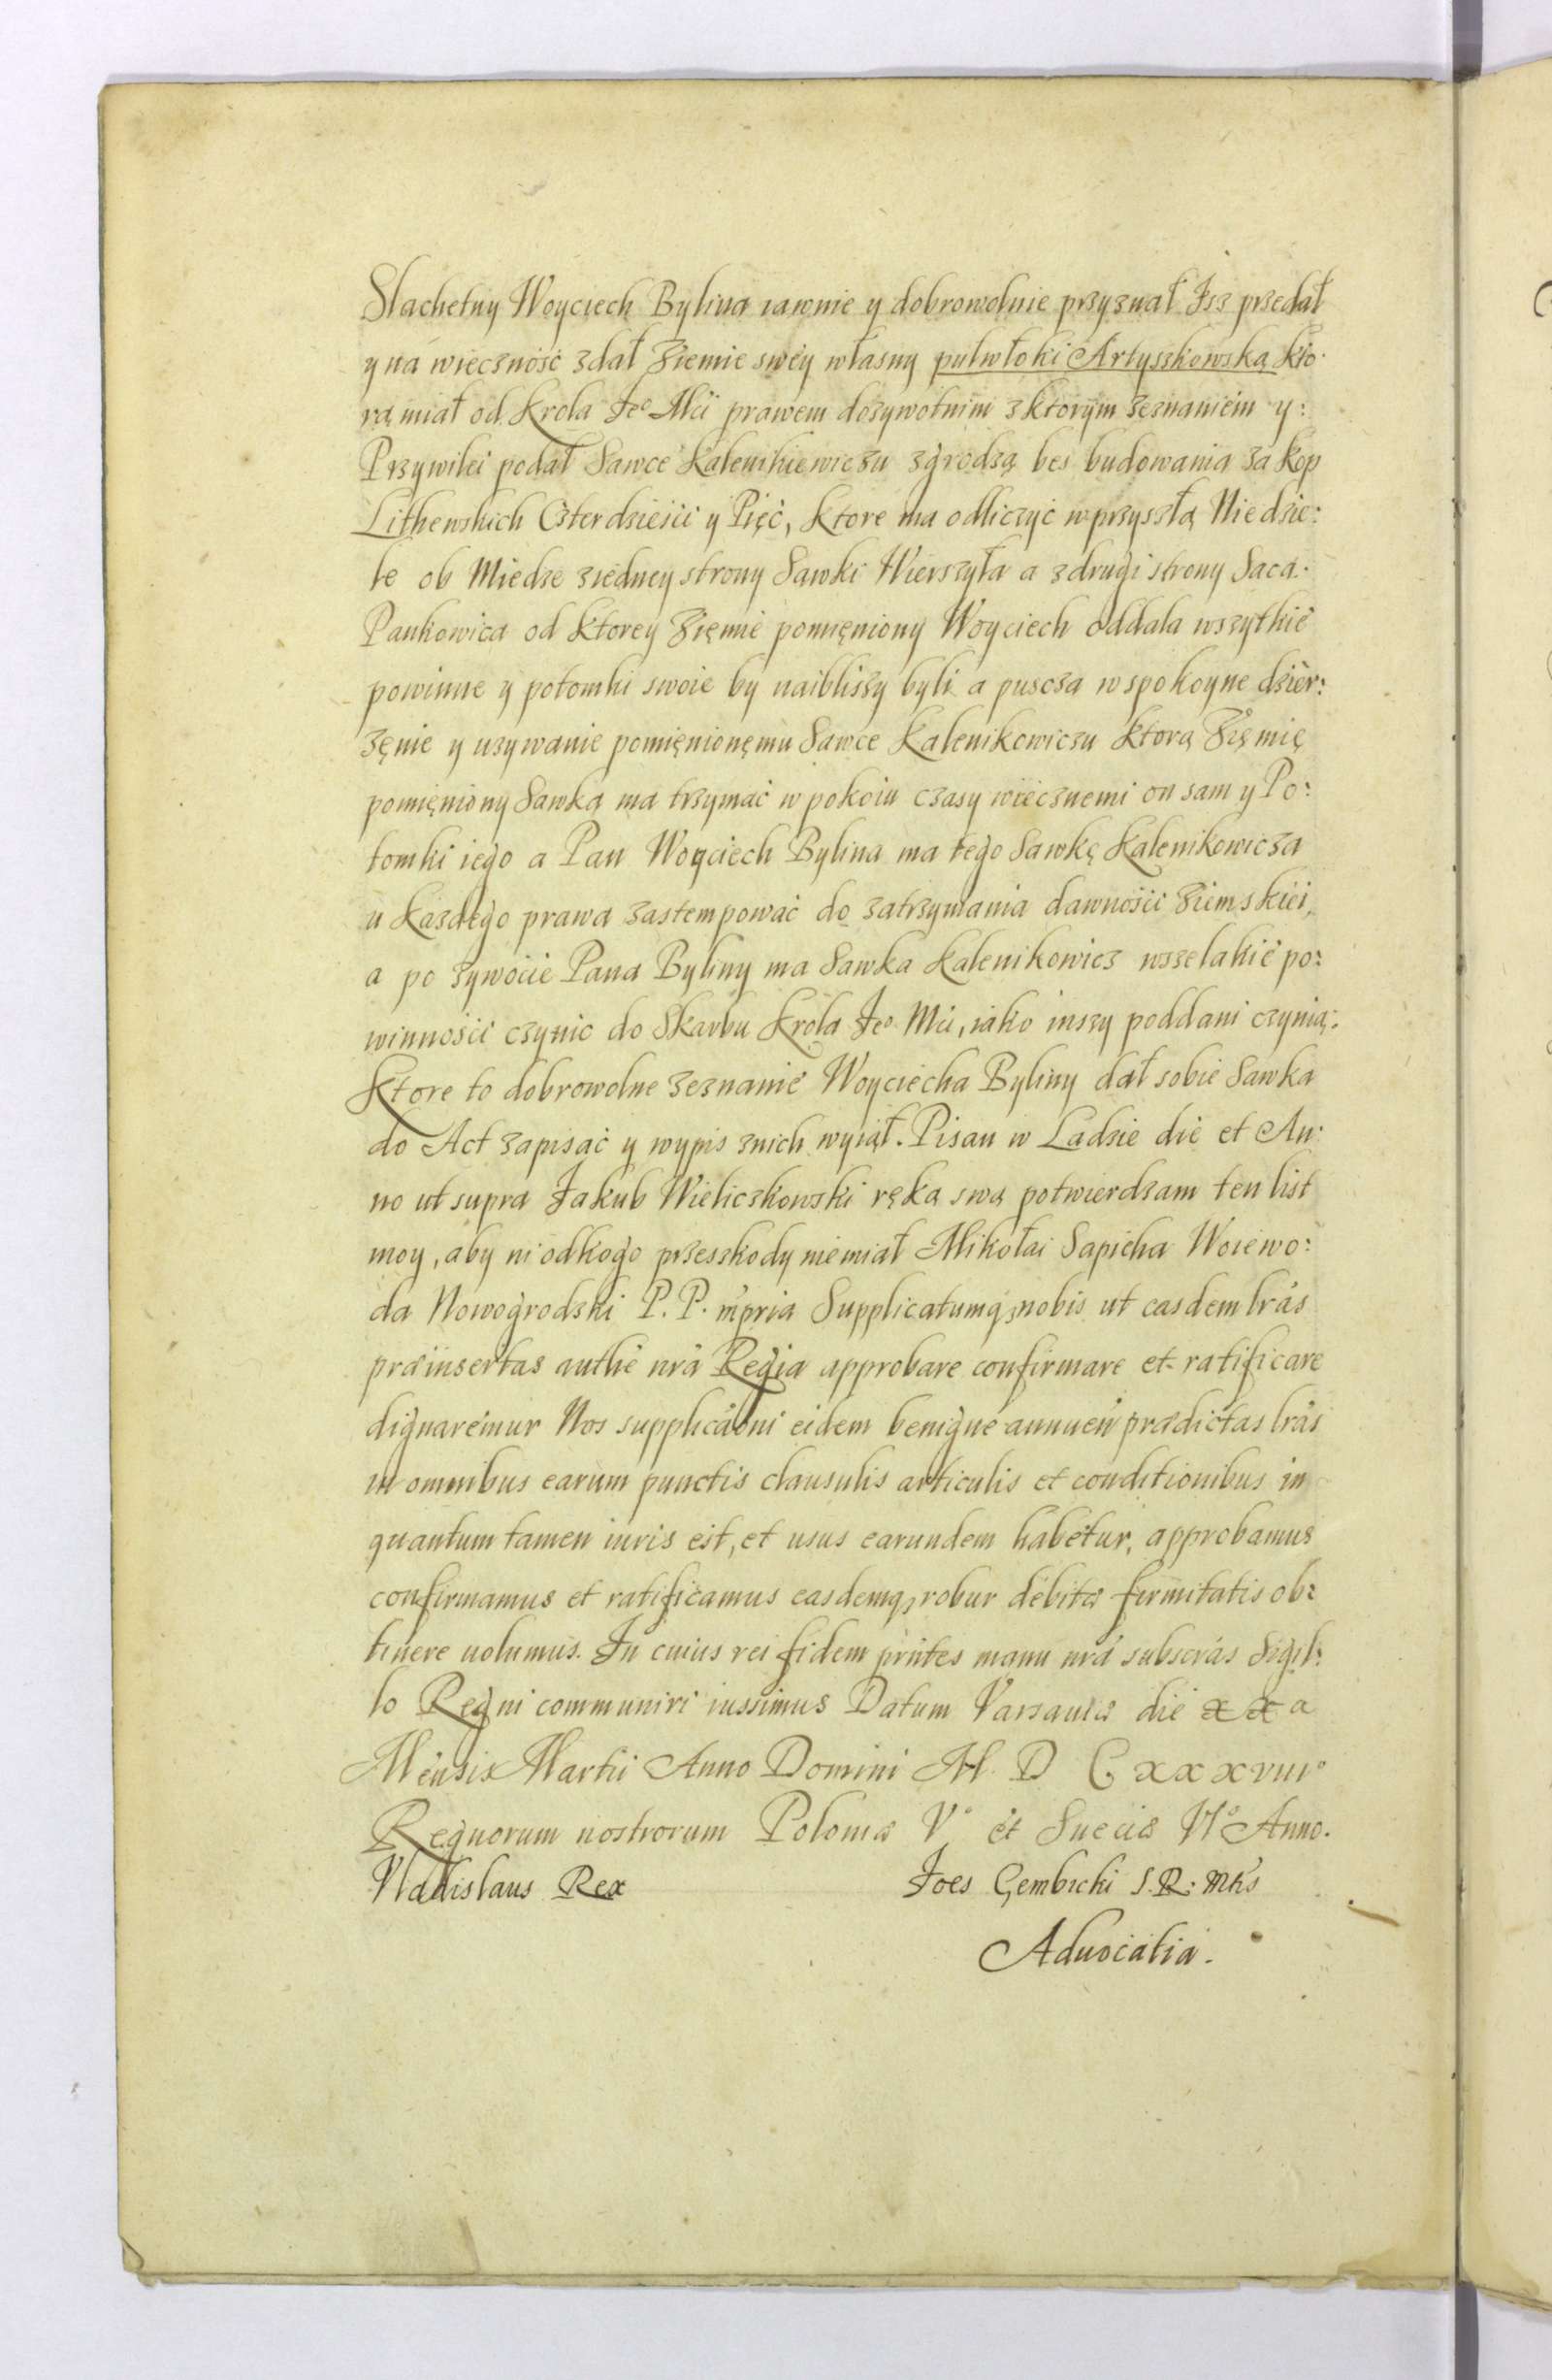 Slachetny Woyciech Bylina iawnie y dobrowolnie przyznał Isz przedał
y na wieczność zdał Ziemie swéy własny pułwłoki Artyszkowską kto·
rą miał od Krola Jeo Mći prawem dożywotnim z ktorym zeznaniem y:
Przywilei podał Sawce Kalenikiewiczu zgrodzą bes budowania za kop
Lithewskich Czterdzieści y Pięć, Ktore ma odliczyć w przyszłą Niedzie:
le ob Miedze ziedney strony Sawki Wierszyła a zdrugi strony Saca·
Pankowica od Ktorey Zięmie pomięniony Woyciech oddala wszytkie
powinne y potomki swoie by naibliszy byli a puscza w spokoyne dzier:
zęnie y uzywanie pomięnionęmu Sawce Kalenikowiczu Ktorą Zięmię
pomięniony Sawka ma trzymać w pokoiu czasy wiecznemi on sam y Po:
tomki iego a Pan Woyciech Bylina ma tego Sawkę Kalenikowicza
u Kazdego prawa zastempować do zatrzymania dawnośći Ziemskiei,
a po zywocie Pana Byliny ma Sawka Kalenikowicz wszelakie po:
winnośći czynic do Skarbu Krola Jeo Mći, iako inszy poddani czynią:
Ktore to dobrowolne zeznanie Woyciecha Byliny dał sobie Sawka
do Act zapisać y wypis znich wyiął. Pisan w Ladzie die et An:
no ut supra Jakub Wieliczkowski ręką swą potwierdzam ten list
moy, aby ni odkogo przeszkody niemiał Mikołai Sapieha Woiewo:
da Nowogrodzki P. P. mpria Supplicatumq3 nobis ut easdem lrás
præinsertas authe nrá Regia approbare confirmare et ratificare
dignaremur Nos supplicáoni eidem benigne annuen prædictas lrás
in omnibus earum punctis clausulis articulis et conditionibus in
quantum tamen iuris est, et usus earundem habetur, approbamus
confirmamus et ratificamus easdemq3 robur debitæ firmitatis ob:
tinere uolumus. In cuius rei fidem prntes manu nrá subscrás Sigil:
lo Regni communiri iussimus Datum Varsauiæ die xx a
Mensis Martii Anno Domini M D C xxxviiio
Regnorum nostrorum Poloniæ Vo et Sueciæ VIo Anno.
Vladislaus Rex Joes Gembicki S. R: Mks
Aduocatia.